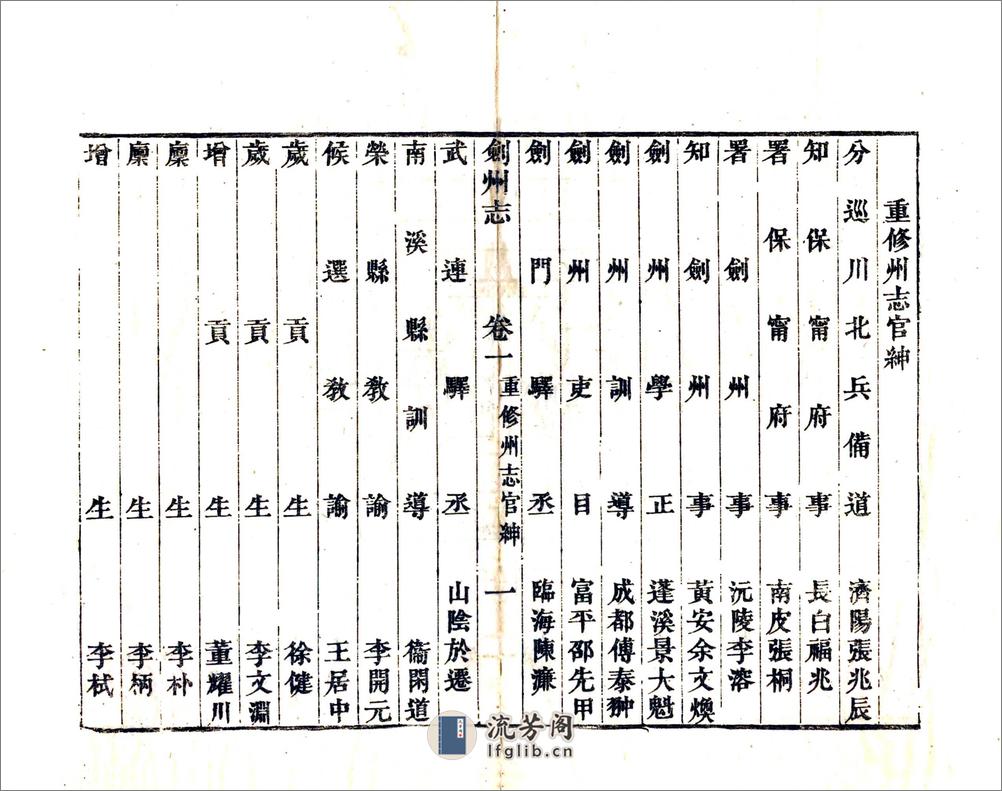 重修州志官紳
分巡川北兵備道濟陽張兆辰
知保甯府事長白福兆
署保甯府事南皮張桐
署劍州事沅陵李溶
知劍州事黃安余文煥
劍州學正蓬溪景大魁
劍州訓導成都傅泰翀
劍州吏目富平邵先甲
劍門驛丞臨海陳濂
劍州志 卷一 重修州志官紳 一
武連驛丞山陰於遷
南溪縣訓導衞閑道
榮縣教諭李開元
候選教諭王居中
歲貢生徐健
歲貢生李文淵
增貢生董耀川
廩生李朴
廩生李柄
增生李栻
流芳阁
lfglib.cn